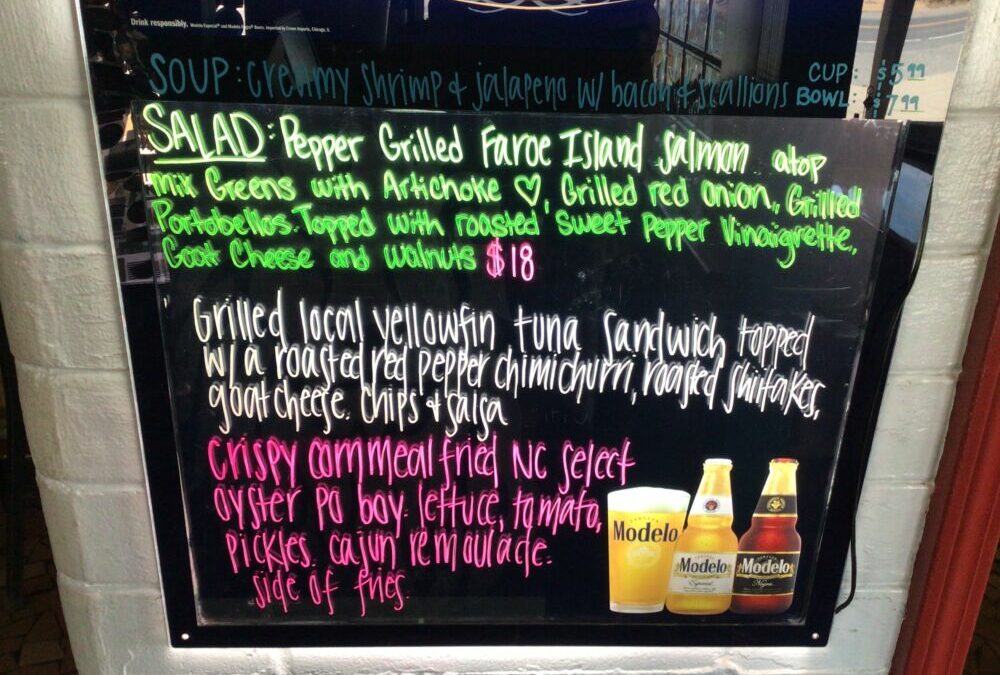 Drink responsibly. Modelo Especial® and Modelo Negra® Beers. Imported by Crown Imports, Chicago, IL
SOUP: Creamy shrimp & jalapeno w/ bacon & scallions
CUP: $5.99
BOWL: $7.99
SALAD: Pepper Grilled Faroe Island Salmon atop
mix Greens with Artichoke ♡, Grilled red onion, Grilled
Portobellos. Topped with roasted sweet Pepper Vinaigrette,
Goat Cheese and walnuts $18
Grilled local yellowfin tuna sandwich topped
w/ a roasted red pepper chimichurri, roasted shiitakes,
goat cheese. chips & salsa
Crispy cornmeal fried NC select
oyster Po boy. lettuce, tomato,
pickles. cajun remoulade.
side of fries.
Modelo
Modelo
Especial
Modelo
Negra